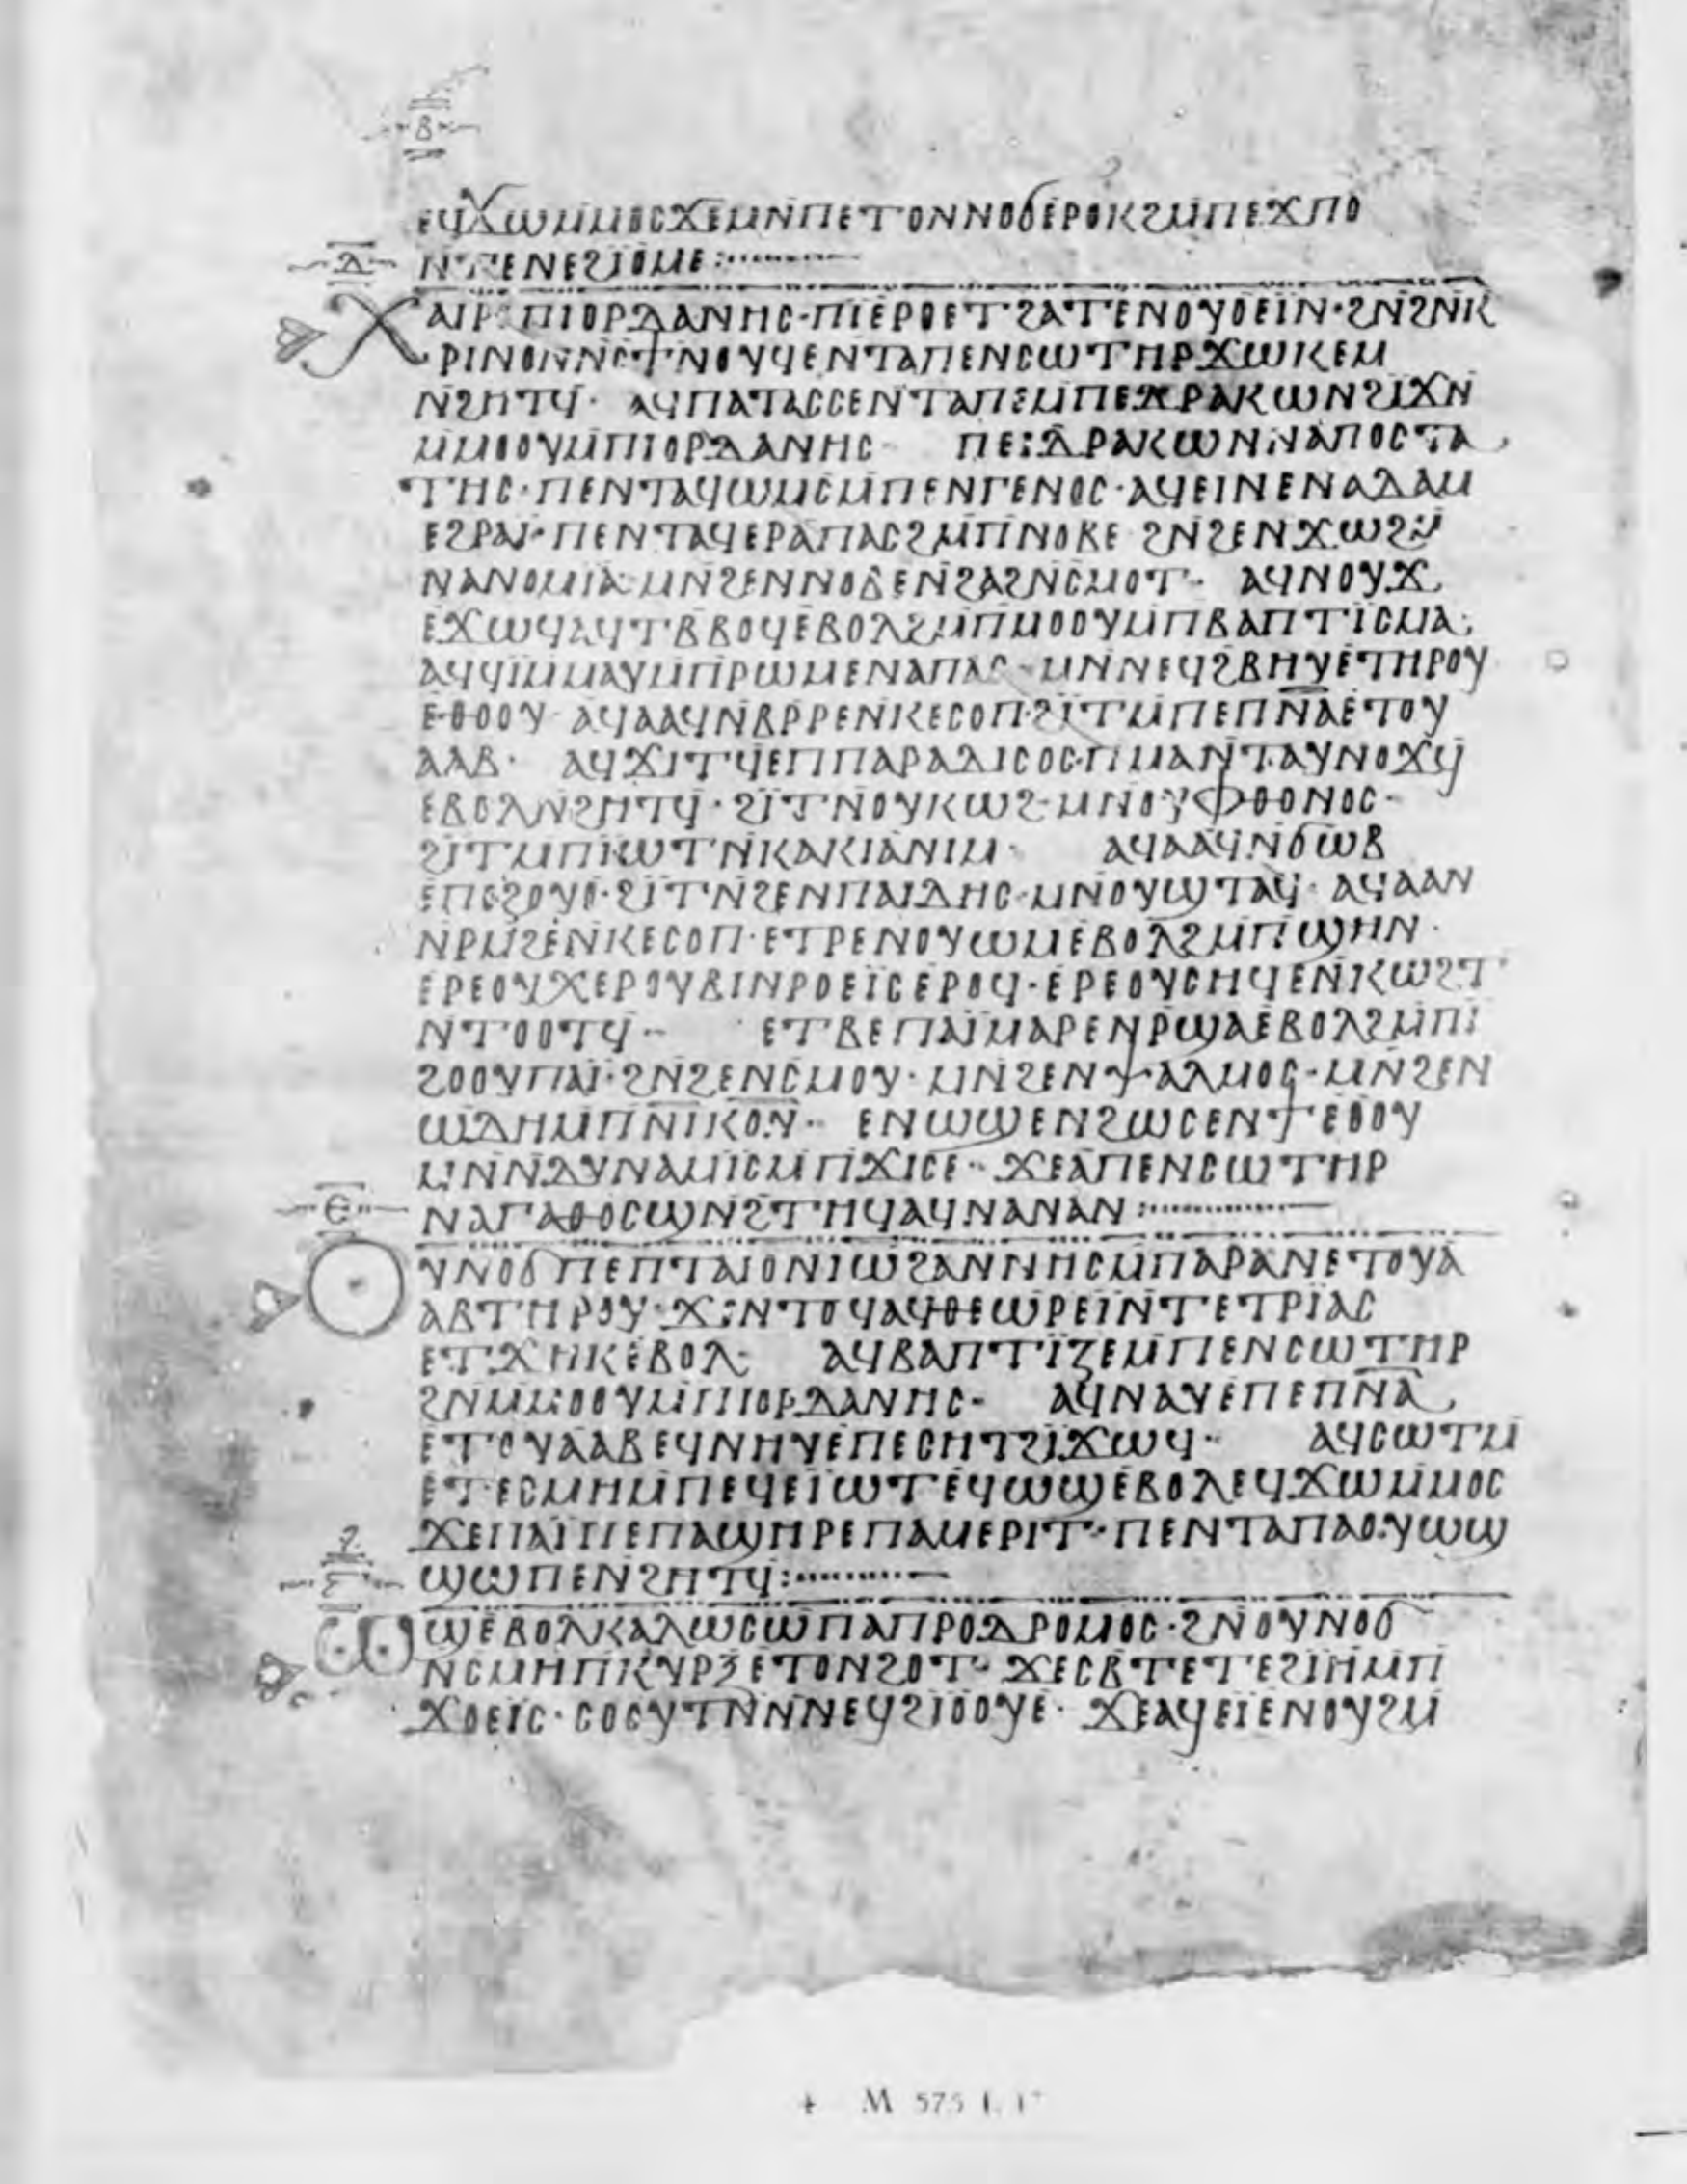 Ⲃ
ⲉϥϫⲱⲙⲙⲟⲥϫⲉⲙⲛ̄ⲡⲉⲧⲟⲛⲛⲟϭⲉⲣⲟⲕϩⲙ̄ⲡⲉϫⲡⲟ
ⲇ̄ ⲛ̄ⲛⲉⲛⲉϩⲓⲟⲙⲉ:
ⲭⲁⲓⲣⲉⲡⲓⲟⲣⲇⲁⲛⲏⲥ·ⲡⲓⲉⲣⲟⲉⲧϩⲁⲧⲉⲛⲟⲩⲟⲉⲓⲛ·ϩⲛ̄ϩⲛ̄ⲕ
ⲣⲓⲛⲟⲛⲛⲥϯⲛⲟⲩϥⲉⲛⲧⲁⲡⲉⲛⲥⲱⲧⲏⲣϫⲱⲕⲉⲙ
ⲛ̄ϩⲏⲧϥ· ⲁϥⲡⲁⲧⲁⲥⲥⲉⲛⲧⲁⲡⲉⲙⲡⲉⲇⲣⲁⲕⲱⲛϩⲓϫⲛ̄
ⲙ̄ⲙⲟⲟⲩⲙ̄ⲡⲓⲟⲣⲇⲁⲛⲏⲥ· ⲡⲉⲓⲇⲣⲁⲕⲱⲛⲛⲁⲡⲟⲥⲧⲁ
ⲧⲏⲥ·ⲡⲉⲛⲧⲁϥⲱⲙⲥⲙ̄ⲡⲉⲛⲅⲉⲛⲟⲥ·ⲁϥⲉⲓⲛⲉⲛⲁⲇⲁⲙ
ⲉϩⲣⲁⲓ·ⲡⲉⲛⲧⲁϥⲉⲣⲁⲡⲁⲥϩⲙ̄ⲡⲛⲟⲃⲉ ϩⲛ̄ϩⲉⲛϫⲱϩⲙ̄
ⲛⲁⲛⲟⲙⲓⲁ·ⲙⲛ̄ϩⲉⲛⲛⲟϭⲉⲛ̄ϩⲁϩⲛ̄ⲥⲙⲟⲧ· ⲁϥⲛⲟⲩϫ
ⲉϫⲱϥⲁϥⲧⲃ̄ⲃⲟϥⲉⲃⲟⲗϩⲙ̄ⲡⲙⲟⲟⲩⲙ̄ⲡⲃⲁⲡⲧⲓⲥⲙⲁ·
ⲁϥϥⲓⲙ̄ⲙⲁⲩⲙ̄ⲡⲣⲱⲙⲉⲛⲁⲡⲁⲥ·ⲙⲛ̄ⲛⲉϥϩⲃⲏⲩⲉⲧⲏⲣⲟⲩ
ⲉⲑⲟⲟⲩ·ⲁϥⲁⲁϥⲛ̄ⲃⲣ̄ⲣⲉⲛ̄ⲕⲉⲥⲟⲡ·ϩⲓⲧⲙ̄ⲡⲉⲡⲛ̄ⲁⲉⲧⲟⲩ
ⲁⲁⲃ· ⲁϥϫⲓⲧϥⲉⲡⲡⲁⲣⲁⲇⲓⲥⲟⲥ·ⲡⲙⲁⲛ̄ⲧⲁⲩⲛⲟϫϥ
ⲉⲃⲟⲗⲛ̄ϩⲏⲧϥ·ϩⲓⲧⲛ̄ⲟⲩⲕⲱϩ·ⲙⲛ̄ⲟⲩⲫⲑⲟⲛⲟⲥ·
ϩⲓⲧⲙ̄ⲡⲕⲱⲧⲛ̄ⲕⲁⲕⲓⲁⲛⲓⲙ· ⲁϥⲁⲁϥⲛ̄ϭⲱⲃ
ⲉⲡⲉϩⲟⲩⲟ·ϩⲓⲧⲛ̄ϩⲉⲛⲡⲁⲓⲇⲏⲥ·ⲙⲛ̄ⲟⲩϣⲧⲁϥ·ⲁϥⲁⲁⲛ
ⲛ̄ⲣⲙ̄ϩⲉⲛ̄ⲕⲉⲥⲟⲡ·ⲉⲧⲣⲉⲛⲟⲩⲱⲙⲉⲃⲟⲗϩⲙ̄ⲡϣⲏⲛ·
ⲉⲣⲉⲟⲩⲭⲉⲣⲟⲩⲃⲓⲛⲣⲟⲉⲓⲥⲉⲣⲟϥ·ⲉⲣⲉⲟⲩⲥⲏϥⲉⲛ̄ⲕⲱϩⲧ
ⲛ̄ⲧⲟⲟⲧϥ· ⲉⲧⲃⲉⲡⲁⲓⲙⲁⲣⲉⲛⲣ̄ϣⲁⲉⲃⲟⲗϩⲙ̄ⲡⲓ
ϩⲟⲟⲩⲡⲁⲓ·ϩⲛ̄ϩⲉⲛⲥⲙⲟⲩ·ⲙⲛ̄ϩⲉⲛⲯⲁⲗⲙⲟⲥ·ⲙⲛ̄ϩⲉⲛ
ⲱⲇⲏⲙ̄ⲡⲛ̄ⲓⲕⲟⲛ· ⲉⲛⲱϣⲉⲛϩⲱⲥⲉⲛϯⲉⲟⲟⲩ
ⲙⲛ̄ⲛⲇⲩⲛⲁⲙⲓⲥⲙ̄ⲡϫⲓⲥⲉ· ϫⲉⲁⲡⲉⲛⲥⲱⲧⲏⲣ
ⲉ̄ ⲛⲁⲅⲁⲑⲟⲥϣⲛ̄ϩⲧⲏϥⲁϥⲛⲁⲛⲁⲛ:
ⲟⲩⲛⲟϭⲡⲉⲡⲧⲁⲓⲟⲛⲓⲱϩⲁⲛⲛⲏⲥⲙ̄ⲡⲁⲣⲁⲛⲉⲧⲟⲩⲁ
ⲁⲃⲧⲏⲣⲟⲩ·ϫⲉⲛ̄ⲧⲟϥⲁϥⲑⲉⲱⲣⲉⲓⲛ̄ⲧⲉⲧⲣⲓⲁⲥ
ⲉⲧϫⲏⲕⲉⲃⲟⲗ· ⲁϥⲃⲁⲡⲧⲓⲍⲉⲙ̄ⲡⲉⲛⲥⲱⲧⲏⲣ
ϩⲛⲙ̄ⲙⲟⲟⲩⲙ̄ⲡⲓⲟⲣⲇⲁⲛⲏⲥ· ⲁϥⲛⲁⲩⲉⲡⲉⲡⲛ̄ⲁ
ⲉⲧⲟⲩⲁⲁⲃⲉϥⲛⲏⲩⲉⲡⲉⲥⲏⲧϩⲓϫⲱϥ· ⲁϥⲥⲱⲧⲙ
ⲉⲧⲉⲥⲙⲏⲙ̄ⲡⲉϥⲉⲓⲱⲧⲉϥⲱϣⲉⲃⲟⲗⲉϥϫⲱⲙ̄ⲙⲟⲥ
ϫⲉⲡⲁⲓⲡⲉⲡⲁϣⲏⲣⲉⲡⲁⲙⲉⲣⲓⲧ·ⲡⲉⲛⲧⲁⲡⲁⲟⲩⲱϣ
ⲋ̄ ϣⲱⲡⲉⲛ̄ϩⲏⲧϥ:
ⲱϣⲉⲃⲟⲗⲕⲁⲗⲱⲥⲱⲡⲁⲡⲣⲟⲇⲣⲟⲙⲟⲥ·ϩⲛ̄ⲟⲩⲛⲟϭ
ⲛ̄ⲥⲙⲏⲡⲕⲩⲣⲝ̄ⲉⲧⲟⲛϩⲟⲧ· ϫⲉⲥⲃ̄ⲧⲉⲧⲉϩⲓⲏⲙ̄ⲡ
ϫⲟⲉⲓⲥ·ⲥⲟⲟⲩⲧⲛ̄ⲛ̄ⲛⲉϥϩⲓⲟⲟⲩⲉ·ϫⲉⲁϥⲉⲓⲉⲛⲟⲩϩⲙ
M 575 f. 1ᵛ